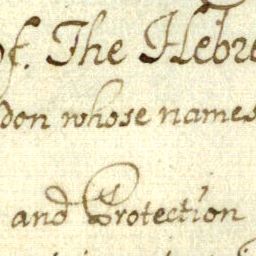 of. The Hebre
don whose names
and Protection